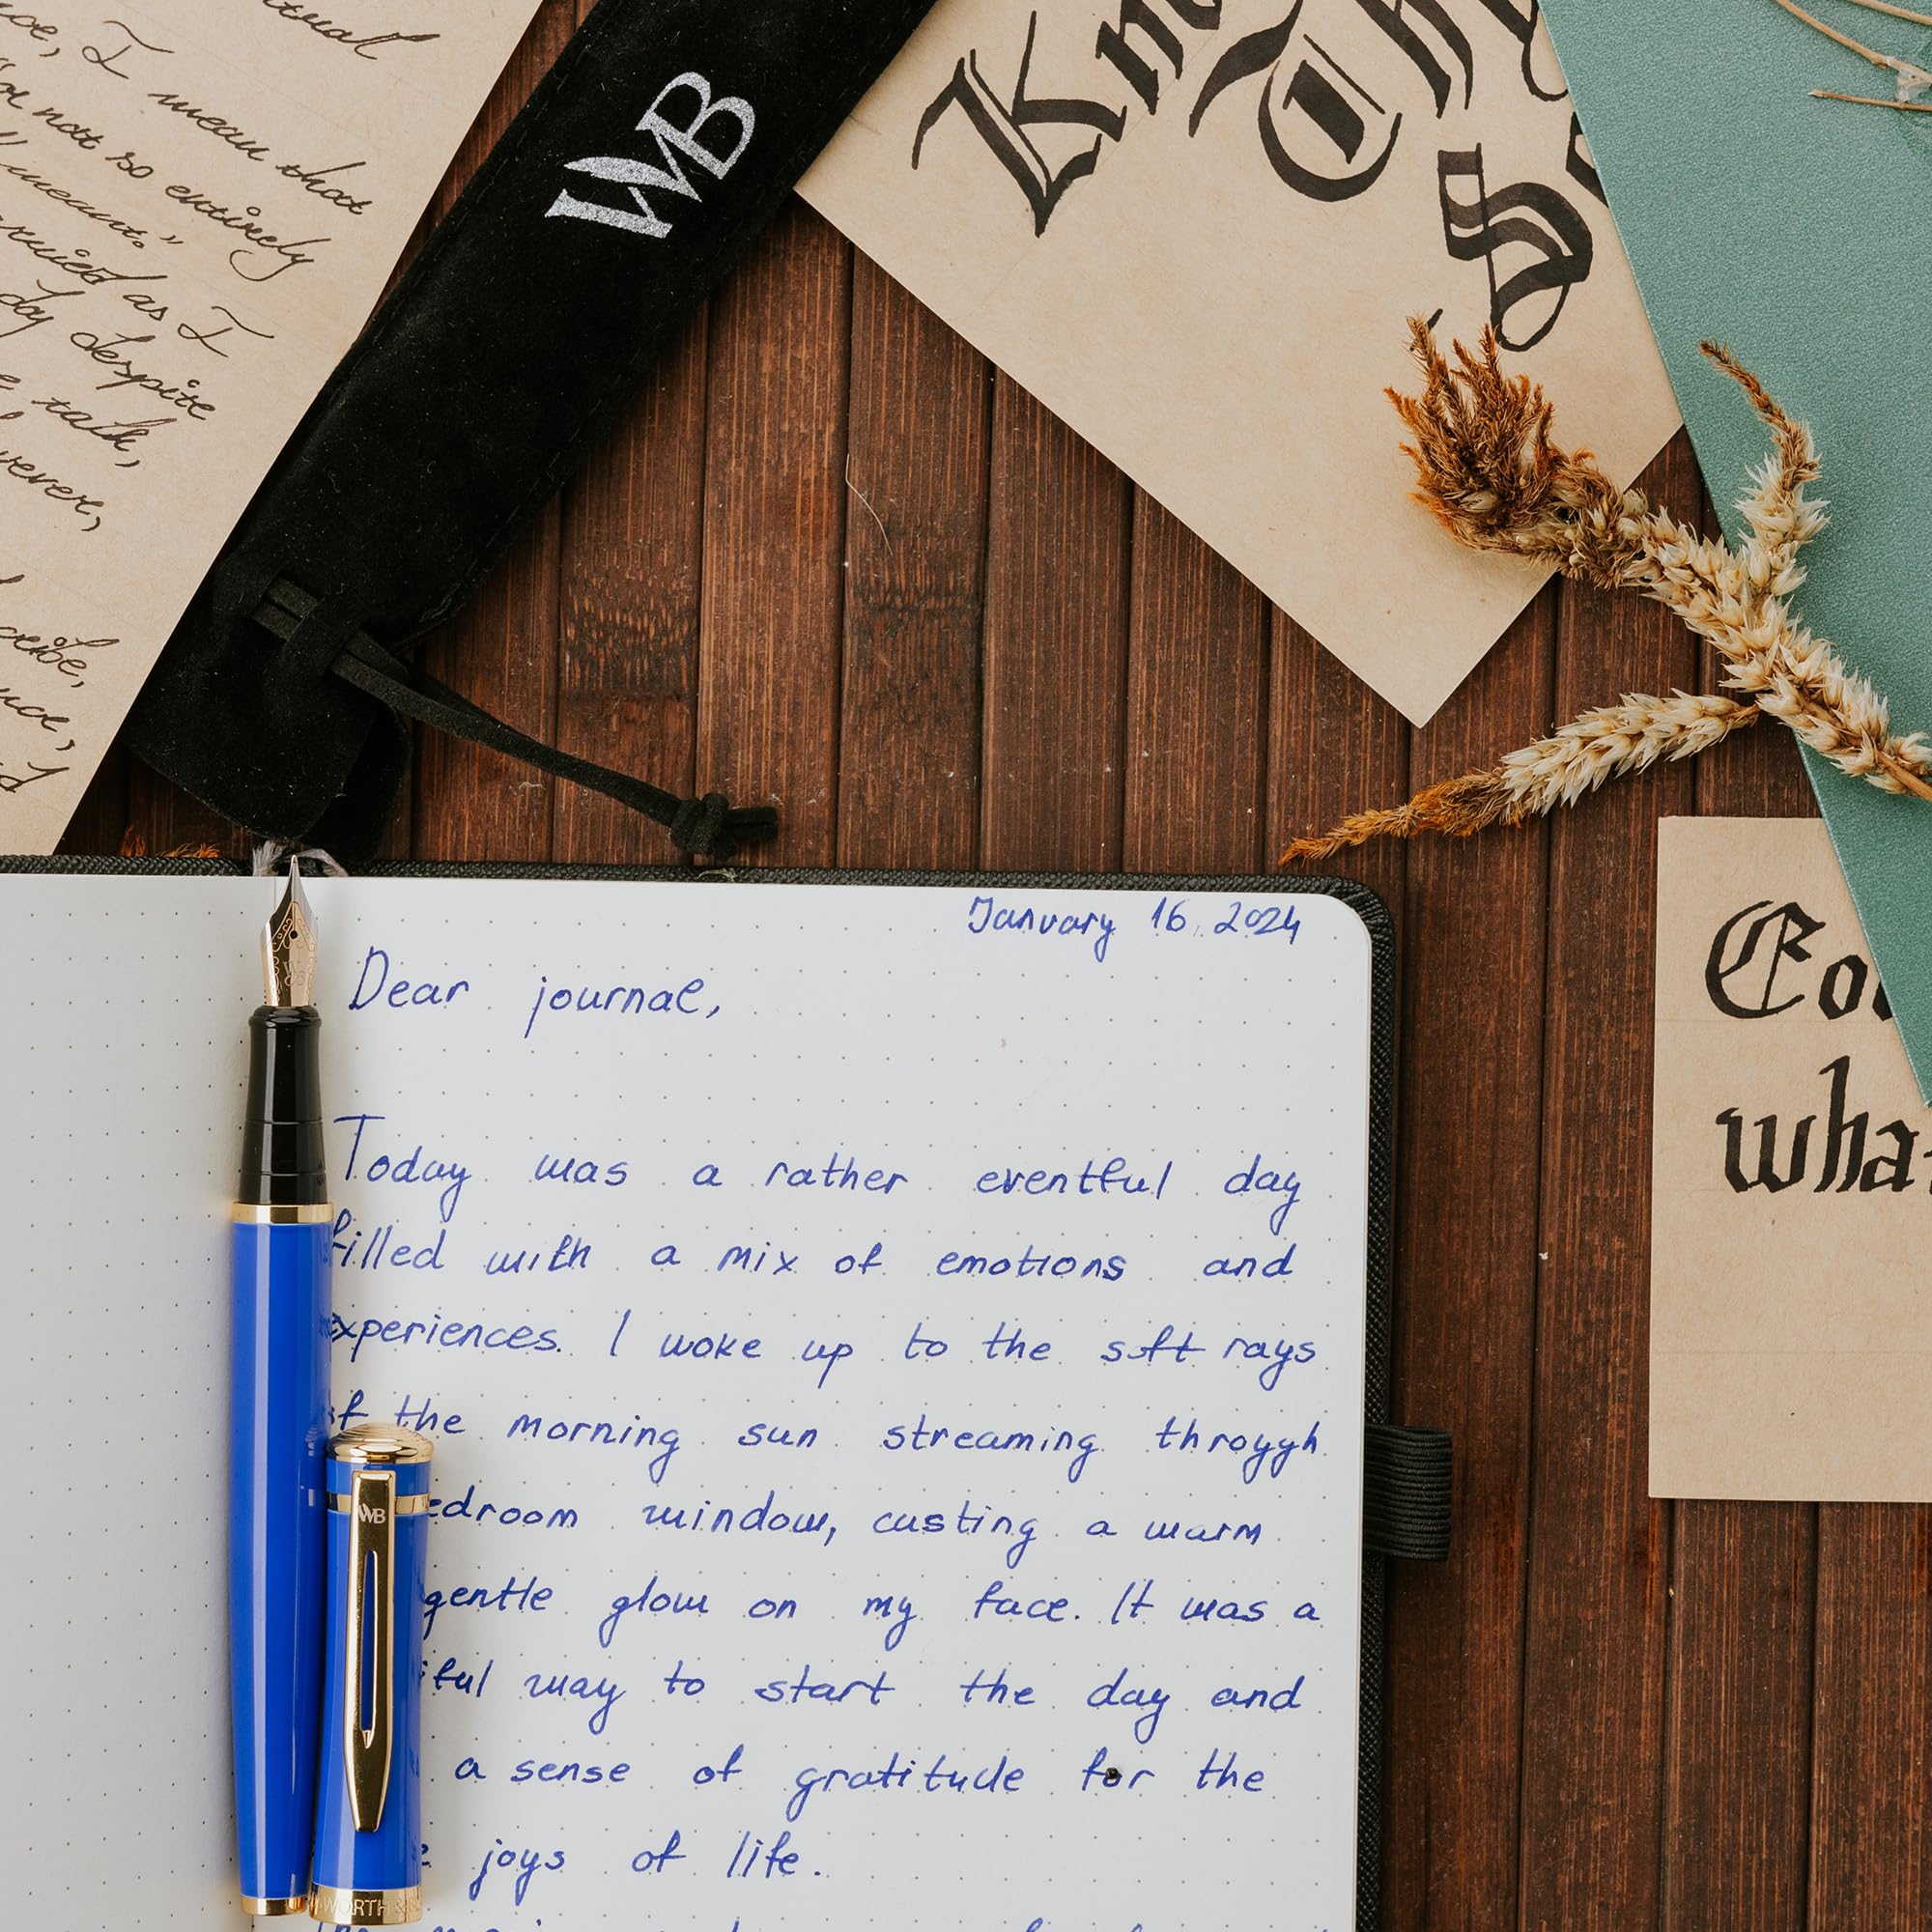 tual
I mean that
not so entirely
meant."
as I
day despite
talk,
WB
Kn
Th
S
January 16, 2024
Dear journal,
Today was a rather eventful day
filled with a mix of emotions and
experiences. I woke up to the soft rays
of the morning sun streaming throygh
edroom window, casting a warm
gentle glow on my face. It was a
iful way to start the day and
a sense of gratitude for the
joys of life.
WB
WORTH &
wha